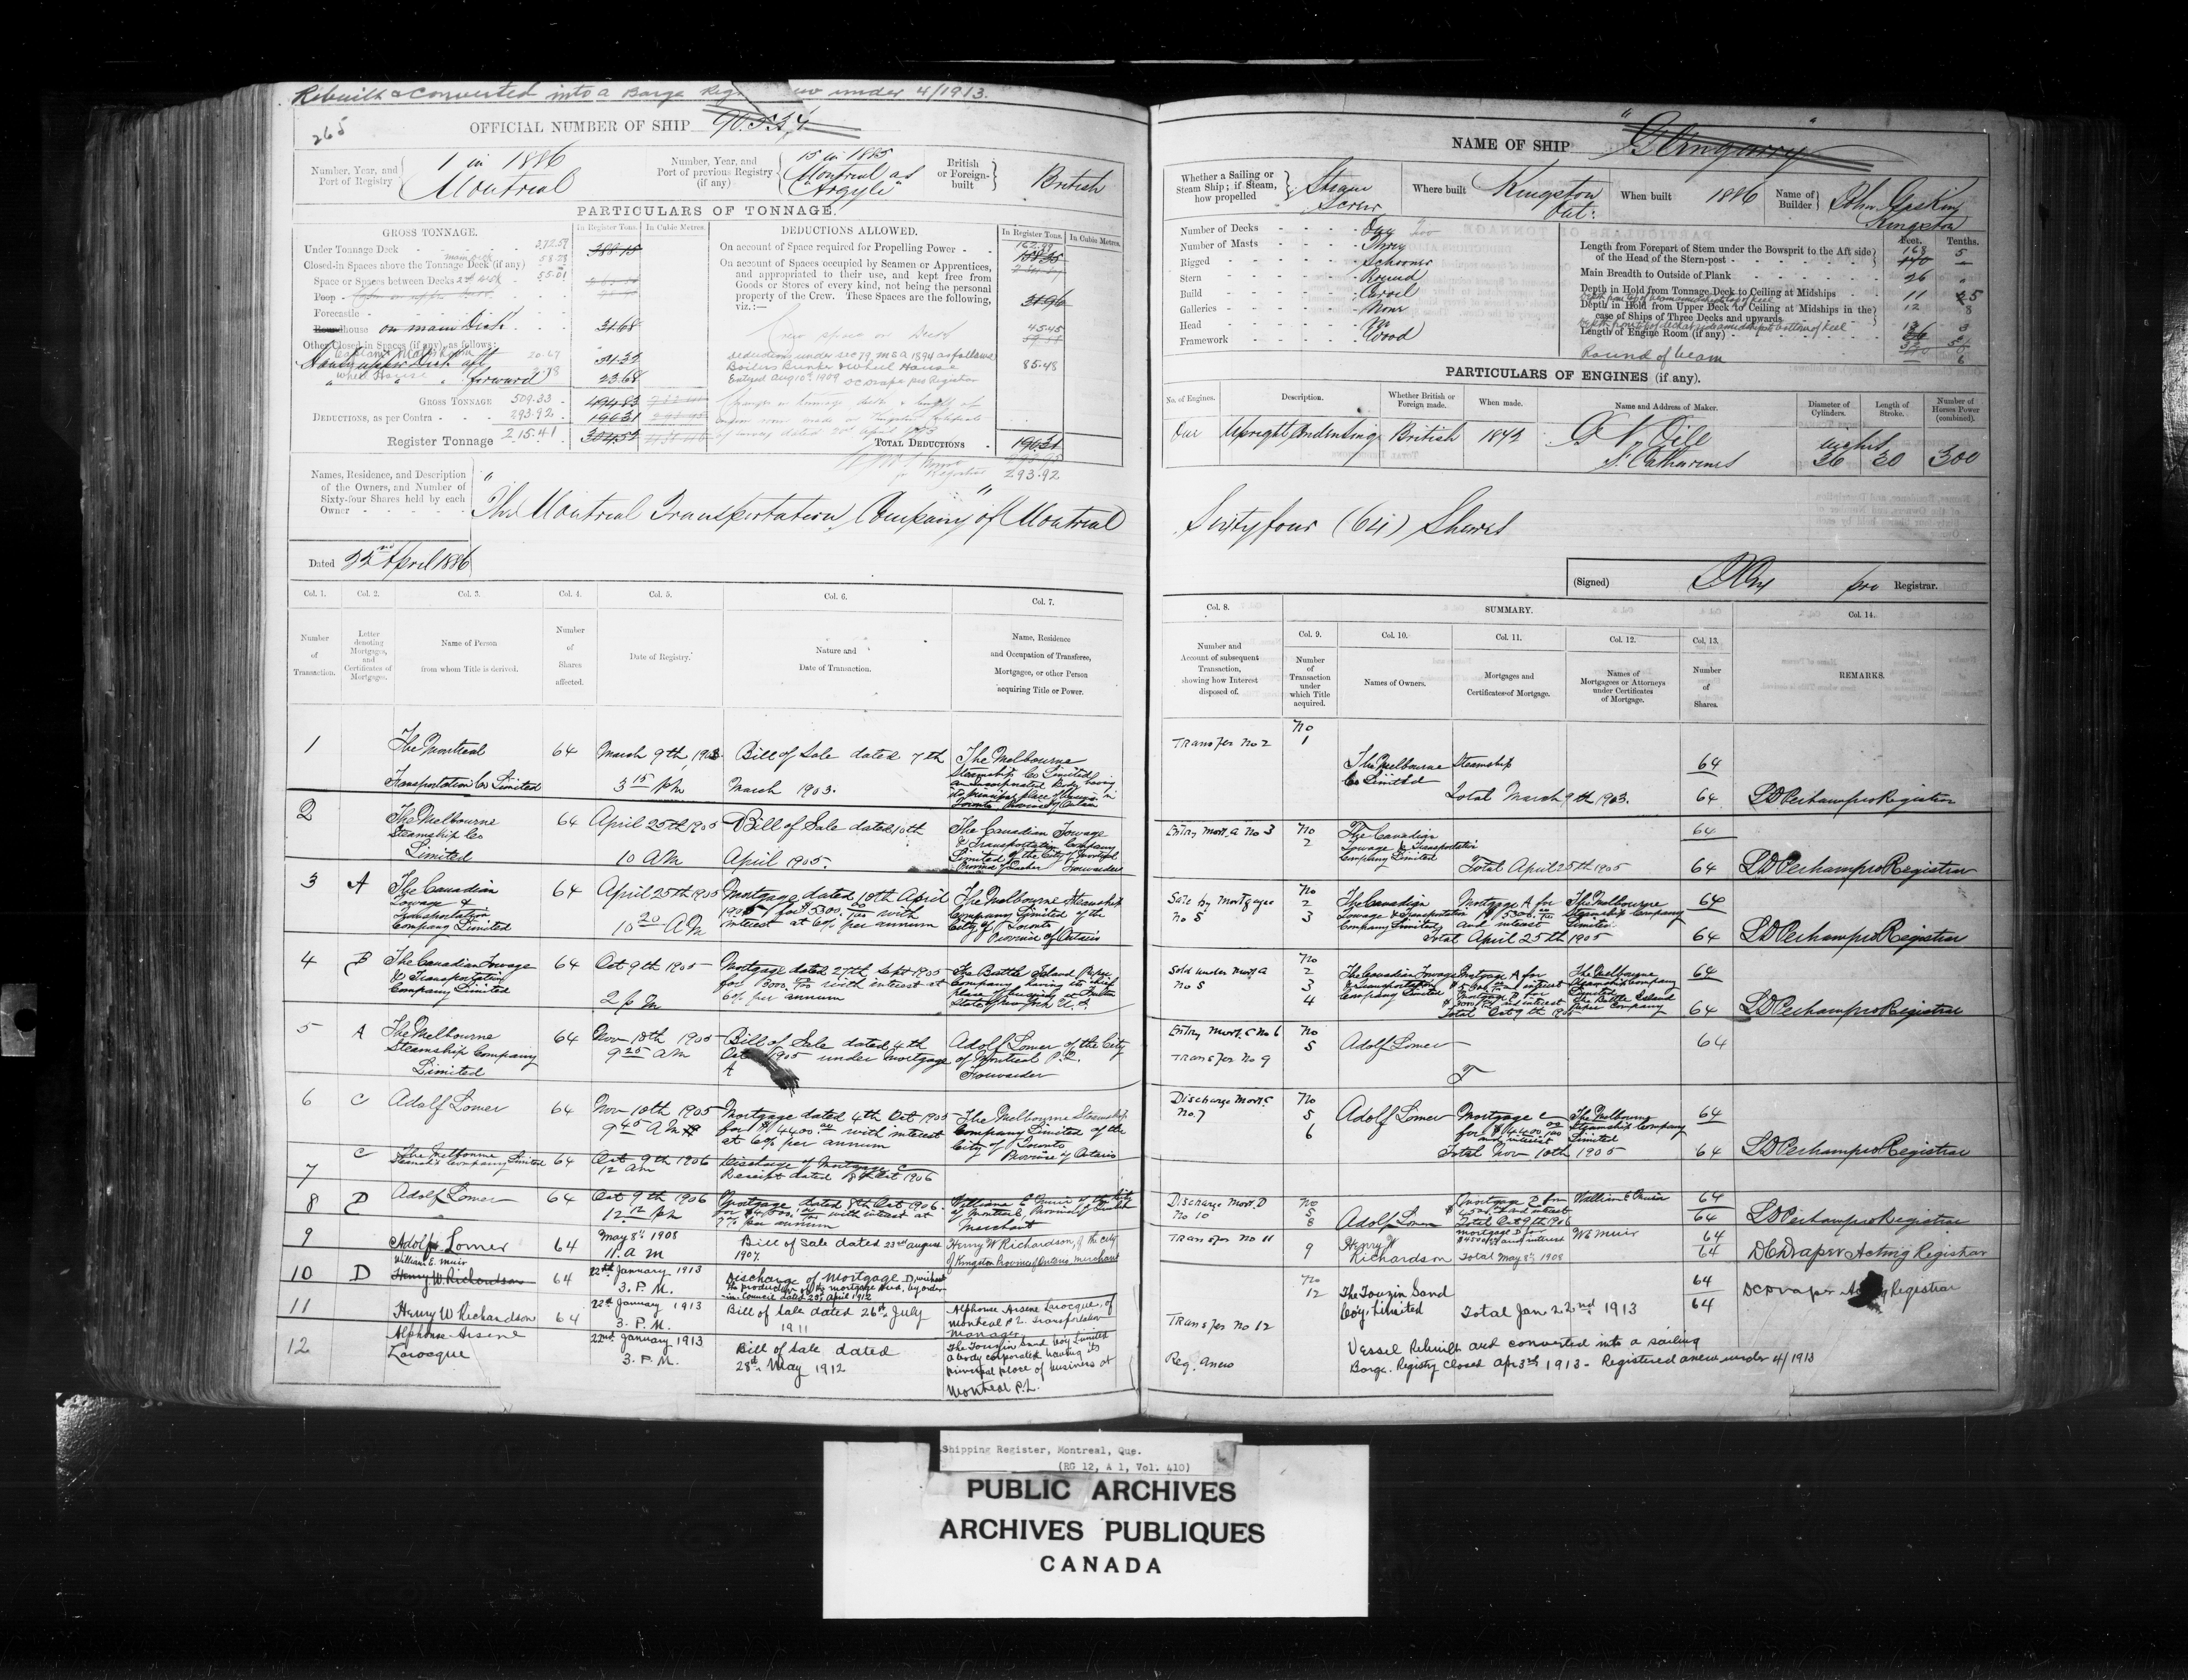 Rebuilt & Converted into a Barge Reg new under 4/1913.
265
OFFICIAL NUMBER OF SHIP 90.534
Number, Year, and Port of Registry
1 in 1886
Montreal
Number, Year, and Port of previous Registry (if any)
15 in 1885
Montreal as
"Argyle"
British or Foreign-built
British
PARTICULARS OF TONNAGE.
GROSS TONNAGE.
In Register Tons.
In Cubic Metres.
Under Tonnage Deck
372.59
388.15
Closed-in Spaces above the Tonnage Deck (if any)
58.28
Space or Spaces between Decks
55.01
Poop
Forecastle
Roundhouse on main Deck
31.68
Other Closed-in Spaces (if any), as follows:
20.67
wheel House
" " " forward
23.68
GROSS TONNAGE 509.33
494.83
DEDUCTIONS, as per Contra 293.92
190.31
Register Tonnage 215.41
304.52
DEDUCTIONS ALLOWED.
In Register Tons.
In Cubic Metres.
On account of Space required for Propelling Power
162.99
158.35
On account of Spaces occupied by Seamen or Apprentices,
and appropriated to their use, and kept free from
Goods or Stores of every kind, not being the personal
property of the Crew. These Spaces are the following,
viz.:—
31.96
Crew space on Deck
45.45
deductions under sec 79 M.S.A 1894 as follows
Boilers Bunker & wheel House
85.48
Entyed Aug 10th 1909 DC Draper per Registrar
TOTAL DEDUCTIONS
190.31
293.92
Names, Residence, and Description
of the Owners, and Number of
Sixty-four Shares held by each
Owner
"The Montreal Transportation Company" of Montreal
Dated 22nd April 1886
Col. 1. Col. 2. Col. 3. Col. 4. Col. 5. Col. 6. Col. 7.
Number of Transaction.
Letter denoting Mortgages, and Certificates of Mortgage.
Name of Person from whom Title is derived.
Number of Shares affected.
Date of Registry.
Nature and Date of Transaction.
Name, Residence and Occupation of Transferee, Mortgagee, or other Person acquiring Title or Power.
1 The Montreal Transportation Co Limited 64 March 9th 1903 3 15 pm Bill of Sale dated 7th March 1903. The Melbourne Steamship Co Limited an incorporated Body having its principal place of Business in Toronto Province of Ontario
2 The Melbourne Steamship Co Limited 64 April 25th 1905 10 AM Bill of Sale dated 10th April 1905. The Canadian Towage & Transportation Company Limited of the City of Montreal Province of Quebec Forwarders
3 A The Canadian Towage & Transportation Company Limited 64 April 25th 1905 10 20 AM Mortgage dated 10th April 1905 for $5300.00/100 with interest at 6% per annum The Melbourne Steamship Company Limited of the City of Toronto Province of Ontario
4 B The Canadian Towage & Transportation Company Limited 64 Oct 9th 1905 2 pm Mortgage dated 27th Sept 1905 for $3000.00/100 with interest at 6% per annum The Battle Island Paper Company, having its chief place of business at Fulton State of New York U.S.
5 A The Melbourne Steamship Company Limited 64 Nov 10th 1905 9 25 am Bill of Sale dated 4th Oct 1905 under Mortgage A Adolf Lomer of the City of Montreal P.Q. Forwarder
6 C Adolf Lomer 64 Nov 10th 1905 9 45 AM Mortgage dated 4th Oct 1905 for $4400.00 with interest at 6% per annum The Melbourne Steamship Company Limited of the City of Toronto Province of Ontario
7 C The Melbourne Steamship Company Limited 64 Oct 9th 1906 12 am Discharge of Mortgage C Receipt dated 8th Oct 1906
8 D Adolf Lomer 64 Oct 9th 1906 12 12 pm Mortgage dated 8th Oct 1906. for $4500.00/100 with interest at 7% per annum William E Muir of the City of Montreal Province of Quebec Merchant
9 Adolf Lomer 64 May 8th 1908 11. a m Bill of Sale dated 23rd august 1907. Henry W Richardson, of the city of Kingston Province of Ontario, merchant
10 D William E. Muir Henry W. Richardson 64 22nd January 1913 3. P. M. Discharge of Mortgage D, without the production of the mortgage deed, by order-in-Council dated 20th April 1912
11 Henry W Richardson 64 22nd January 1913 3. P. M. Bill of Sale dated 26th July 1911 Alphonse Arsene Larocque, of Montreal P.Q. Transportation Manager,
12 Alphonse Arsene Larocque 22nd January 1913 3. P. M. Bill of Sale dated 28th May 1912 The Touzin Sand Coy Limited a body corporated having its principal place of business at Montreal P.Q.
NAME OF SHIP "Glengarry"
Whether a Sailing or Steam Ship; if Steam, how propelled
Steam Screw
Where built
Kingston Ont:
When built
1886
Name of Builder
John Gaskin Kingston
Number of Decks One Two
Number of Masts Three
Rigged Schooner
Stern Round
Build Carvel
Galleries None
Head No
Framework Wood
Feet. Tenths.
Length from Forepart of Stem under the Bowsprit to the Aft side of the Head of the Stern-post
168 5
170
Main Breadth to Outside of Plank
26
Depth in Hold from Tonnage Deck to Ceiling at Midships
11 5
Depth in Hold from Upper Deck to Ceiling at Midships in the case of Ships of Three Decks and upwards
12 8
Length of Engine Room (if any)
13 3
Round of beam
6
PARTICULARS OF ENGINES (if any).
No. of Engines. Description. Whether British or Foreign made. When made. Name and Address of Maker. Diameter of Cylinders. Length of Stroke. Number of Horses Power (combined).
One Upright Condensing British 1843 St. Catharines 36 30 300
Sixty four (64) Shares
(Signed) pro Registrar.
Col. 8. SUMMARY. Col. 14.
Col. 9. Col. 10. Col. 11. Col. 12. Col. 13.
Number and Account of subsequent Transaction, showing how Interest disposed of.
Number of Transaction under which Title acquired.
Names of Owners.
Mortgages and Certificates of Mortgage.
Names of Mortgagees or Attorneys under Certificates of Mortgage.
Number of Shares.
REMARKS.
Transfer No 2 No 1 The Melbourne Steamship Co Limited 64
Total March 9th 1903. 64 LD Perham pro Registrar
Entry Mort. A No 3 No 2 The Canadian Towage & Transportation Company Limited 64
Total April 25th 1905 64 LD Perham pro Registrar
Sale by Mortgagee No 5 No 2 3 The Canadian Towage & Transportation Company Limited Mortgage A for $5300.00/100 and interest The Melbourne Steamship Company Limited 64
Total April 25th 1905 64 LD Perham pro Registrar
Sold under Mort A No 5 No 2 3 4 The Canadian Towage & Transportation Company Limited Mortgage A for and interest Mortgage B for $3000 and interest The Melbourne Steamship Company Limited The Battle Island Paper Company 64
Total Oct 9th 1905 64 LD Perham pro Registrar
Entry Mort. C No 6 No 5 Adolf Lomer 64
Transfer No 9 T
Discharge Mort. C No. 7 No 5 6 Adolf Lomer Mortgage C for $4400.00/100 and interest The Melbourne Steamship Company Limited 64
Total Nov 10th 1905 64 LD Perham pro Registrar
Discharge Mort. D No 10 No 5 8 Adolf Lomer Mortgage D for $4500 and interest William E Muir 64
Total Oct 9th 1906 64 LD Perham pro Registrar
Transfer No 11 9 Henry W Richardson mortgage D for $4500 and interest WE Muir 64
Total May 8th 1908 64 DC Draper Acting Registrar
No 12 The Touzin Sand Coy, Limited 64
Total Jan 22nd 1913 64 DC Draper Registrar
Transfer No 12
Vessel Rebuilt and converted into a sailing
Reg. anew Barge. Registry closed Apr 3rd 1913 - Registered anew under 4/1913
Shipping Register, Montreal, Que.
(RG 12, A 1, Vol. 410)
PUBLIC ARCHIVES
ARCHIVES PUBLIQUES
CANADA